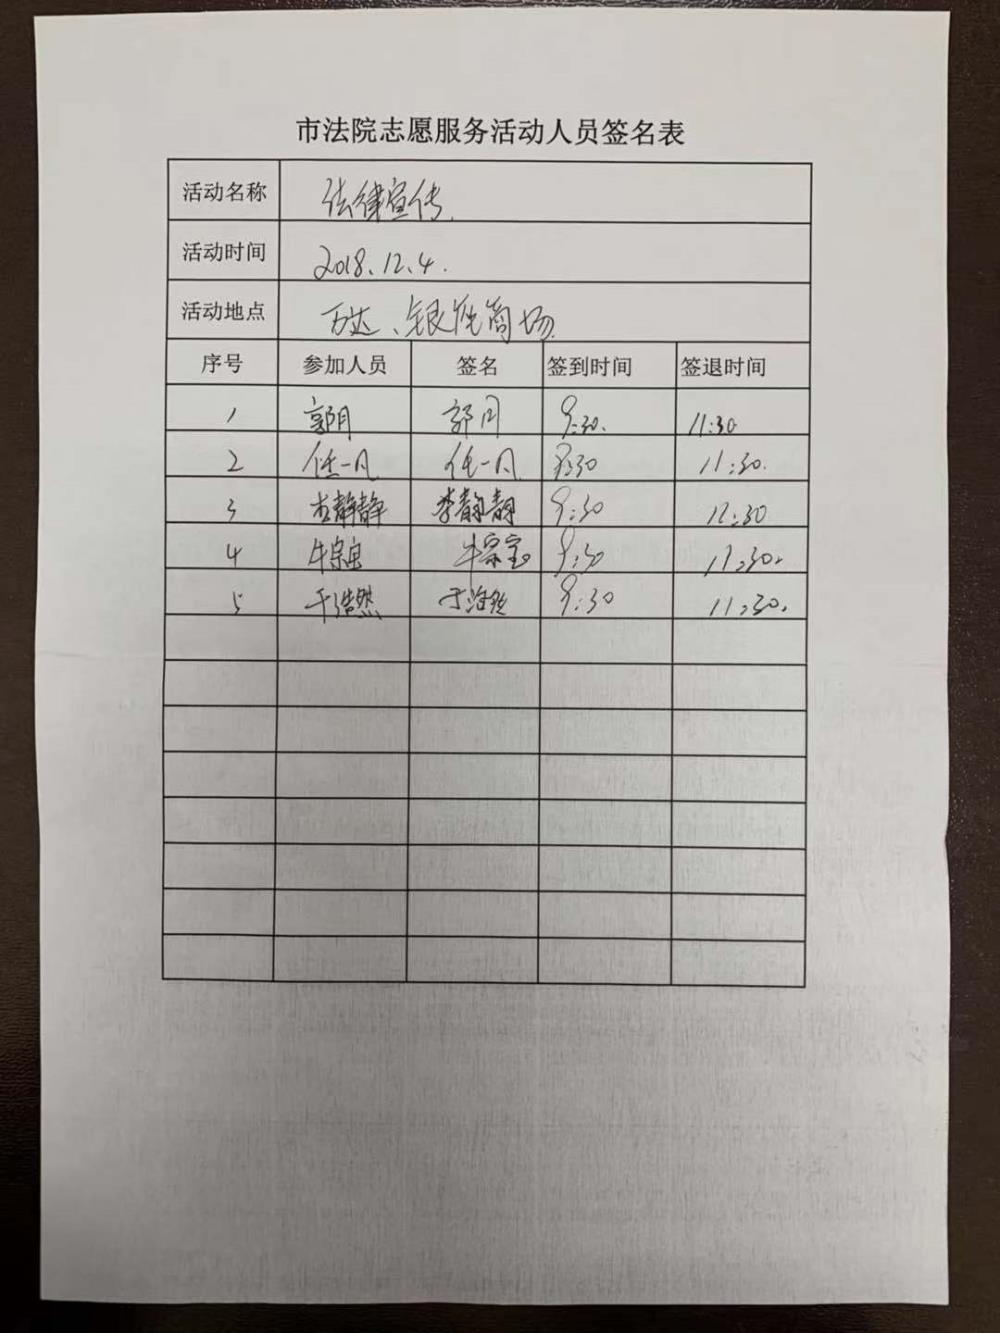 市法院志愿服务活动人员签名表
活动名称 法律宣传.
活动时间 2018.12.4.
活动地点 万达、银座商场
序号 参加人员 签名 签到时间 签退时间
1 郭月 郭月 9:30. 11:30
2 任一凡 任一凡 9:30 11:30.
3 李静静 李静静 9:30 11:30
4 牛宗宝 牛宗宝 9:30 11:30.
5 于浩然 于浩然 9:30 11:30.